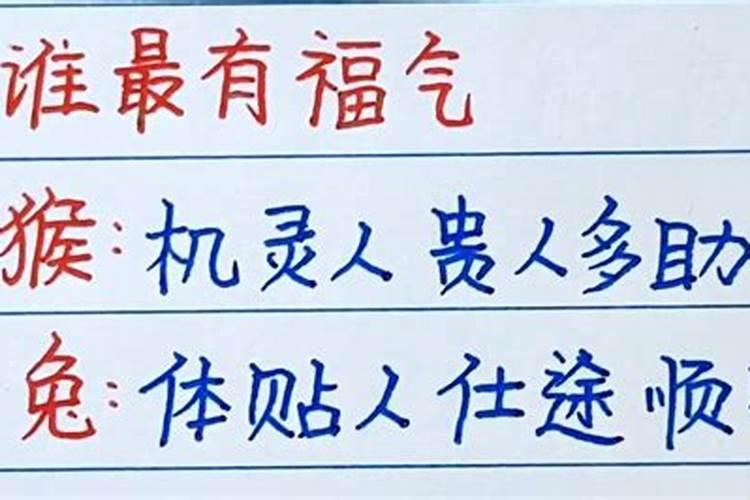 谁最有福气
猴:机灵人 贵人多助
兔:体贴人 仕途顺